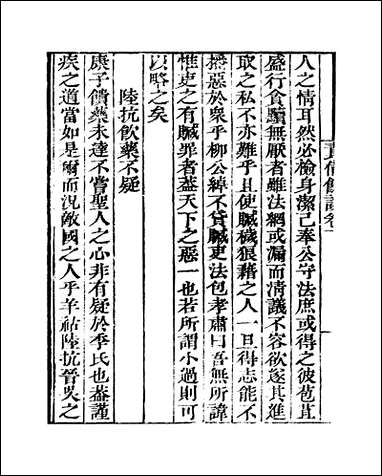 人之情耳然必檢身潔己奉公守法庶或得之彼苞苴
盛行貪黷無厭者雖法網或漏而清議不容欲遂其進
取之私不亦難乎且使贓穢狼藉之人一旦得志能不
播惡於衆乎柳公綽不貸贓吏法包孝肅曰吾無所諱
惟吏之有贓罪者蓋天下之惡一也若所謂小過則可
以略之矣
陸抗飲藥不疑
康子饋藥未達不嘗聖人之心非有疑於季氏也蓋謹
疾之道當如是爾而況敵國之人乎羊祜陸抗晉吳之